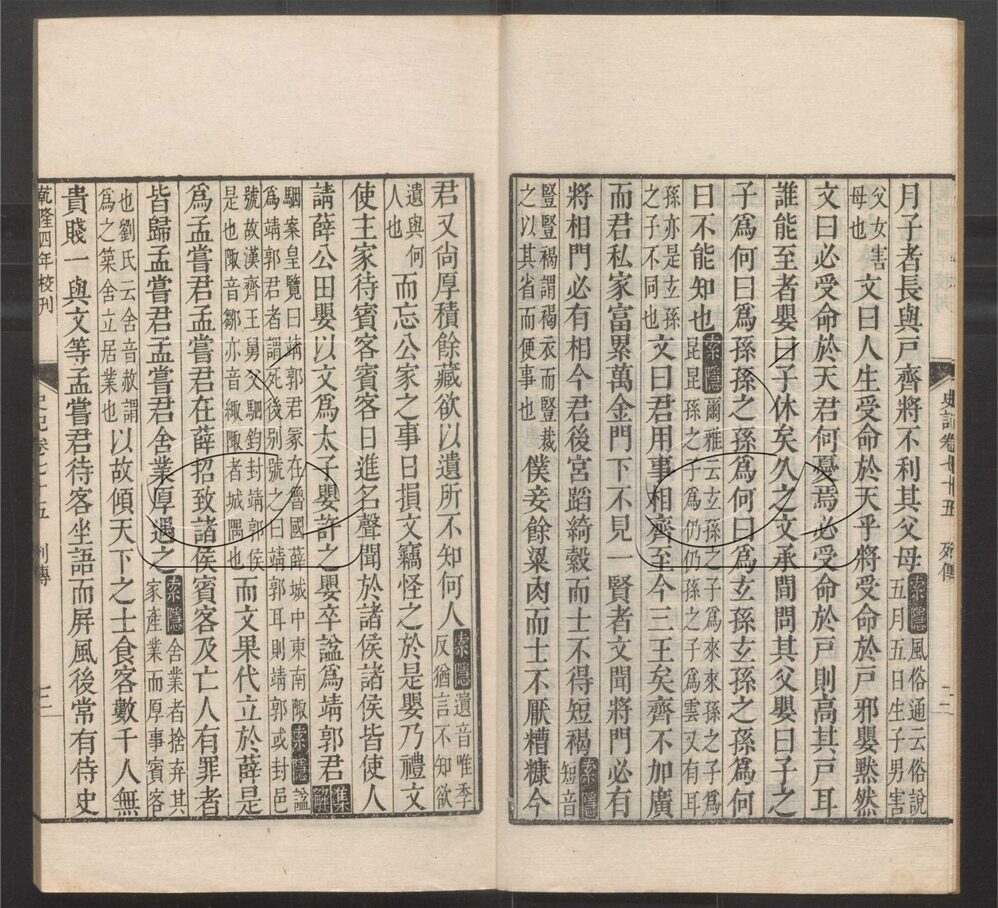 月子者長與戸齊將不利其父母索隱風俗通云俗說五月五日生子男害
父女害母也文曰人生受命於天乎將受命於戸邪嬰默然
文曰必受命於天君何憂焉必受命於戸則高其戸耳
誰能至者嬰曰子休矣久之文承間問其父嬰曰子之
子爲何曰爲孫孫之孫爲何曰爲玄孫玄孫之孫爲何
曰不能知也索隱爾雅云玄孫之子爲來來孫之子爲昆昆孫之子爲仍仍孫之子爲雲又有耳
孫亦是玄孫之子不同也文曰君用事相齊至今三王矣齊不加廣
而君私家富累萬金門下不見一賢者文聞將門必有
將相門必有相今君後宮蹈綺縠而士不得短褐索隱短音
豎豎褐謂褐衣而豎裁之以其省而便事也僕妾餘粱肉而士不厭糟糠今
君又尚厚積餘藏欲以遺所不知何人索隱遺音唯季反猶言不知欲
遺與何人也而忘公家之事日損文竊怪之於是嬰乃禮文
使主家待賓客賓客日進名聲聞於諸侯諸侯皆使人
請薛公田嬰以文爲太子嬰許之嬰卒諡爲靖郭君集解
駰案皇覽曰靖郭君冢在魯國薛城中東南陬索隱諡爲靖郭君者謂死後别號之曰靖郭耳則靖郭或封邑
號故漢齊王舅父駟鈞封靖郭侯是也陬音鄒亦音緅陬者城隅也而文果代立於薛是
爲孟嘗君孟嘗君在薛招致諸侯賓客及亡人有罪者
皆歸孟嘗君孟嘗君舍業厚遇之索隱舍業者捨弃其家產業而厚事賓客
也劉氏云舍音赦謂爲之築舍立居業也以故傾天下之士食客數千人無
貴賤一與文等孟嘗君待客坐語而屏風後常有侍史
乾隆四年校刊 史記卷七十五 列傳